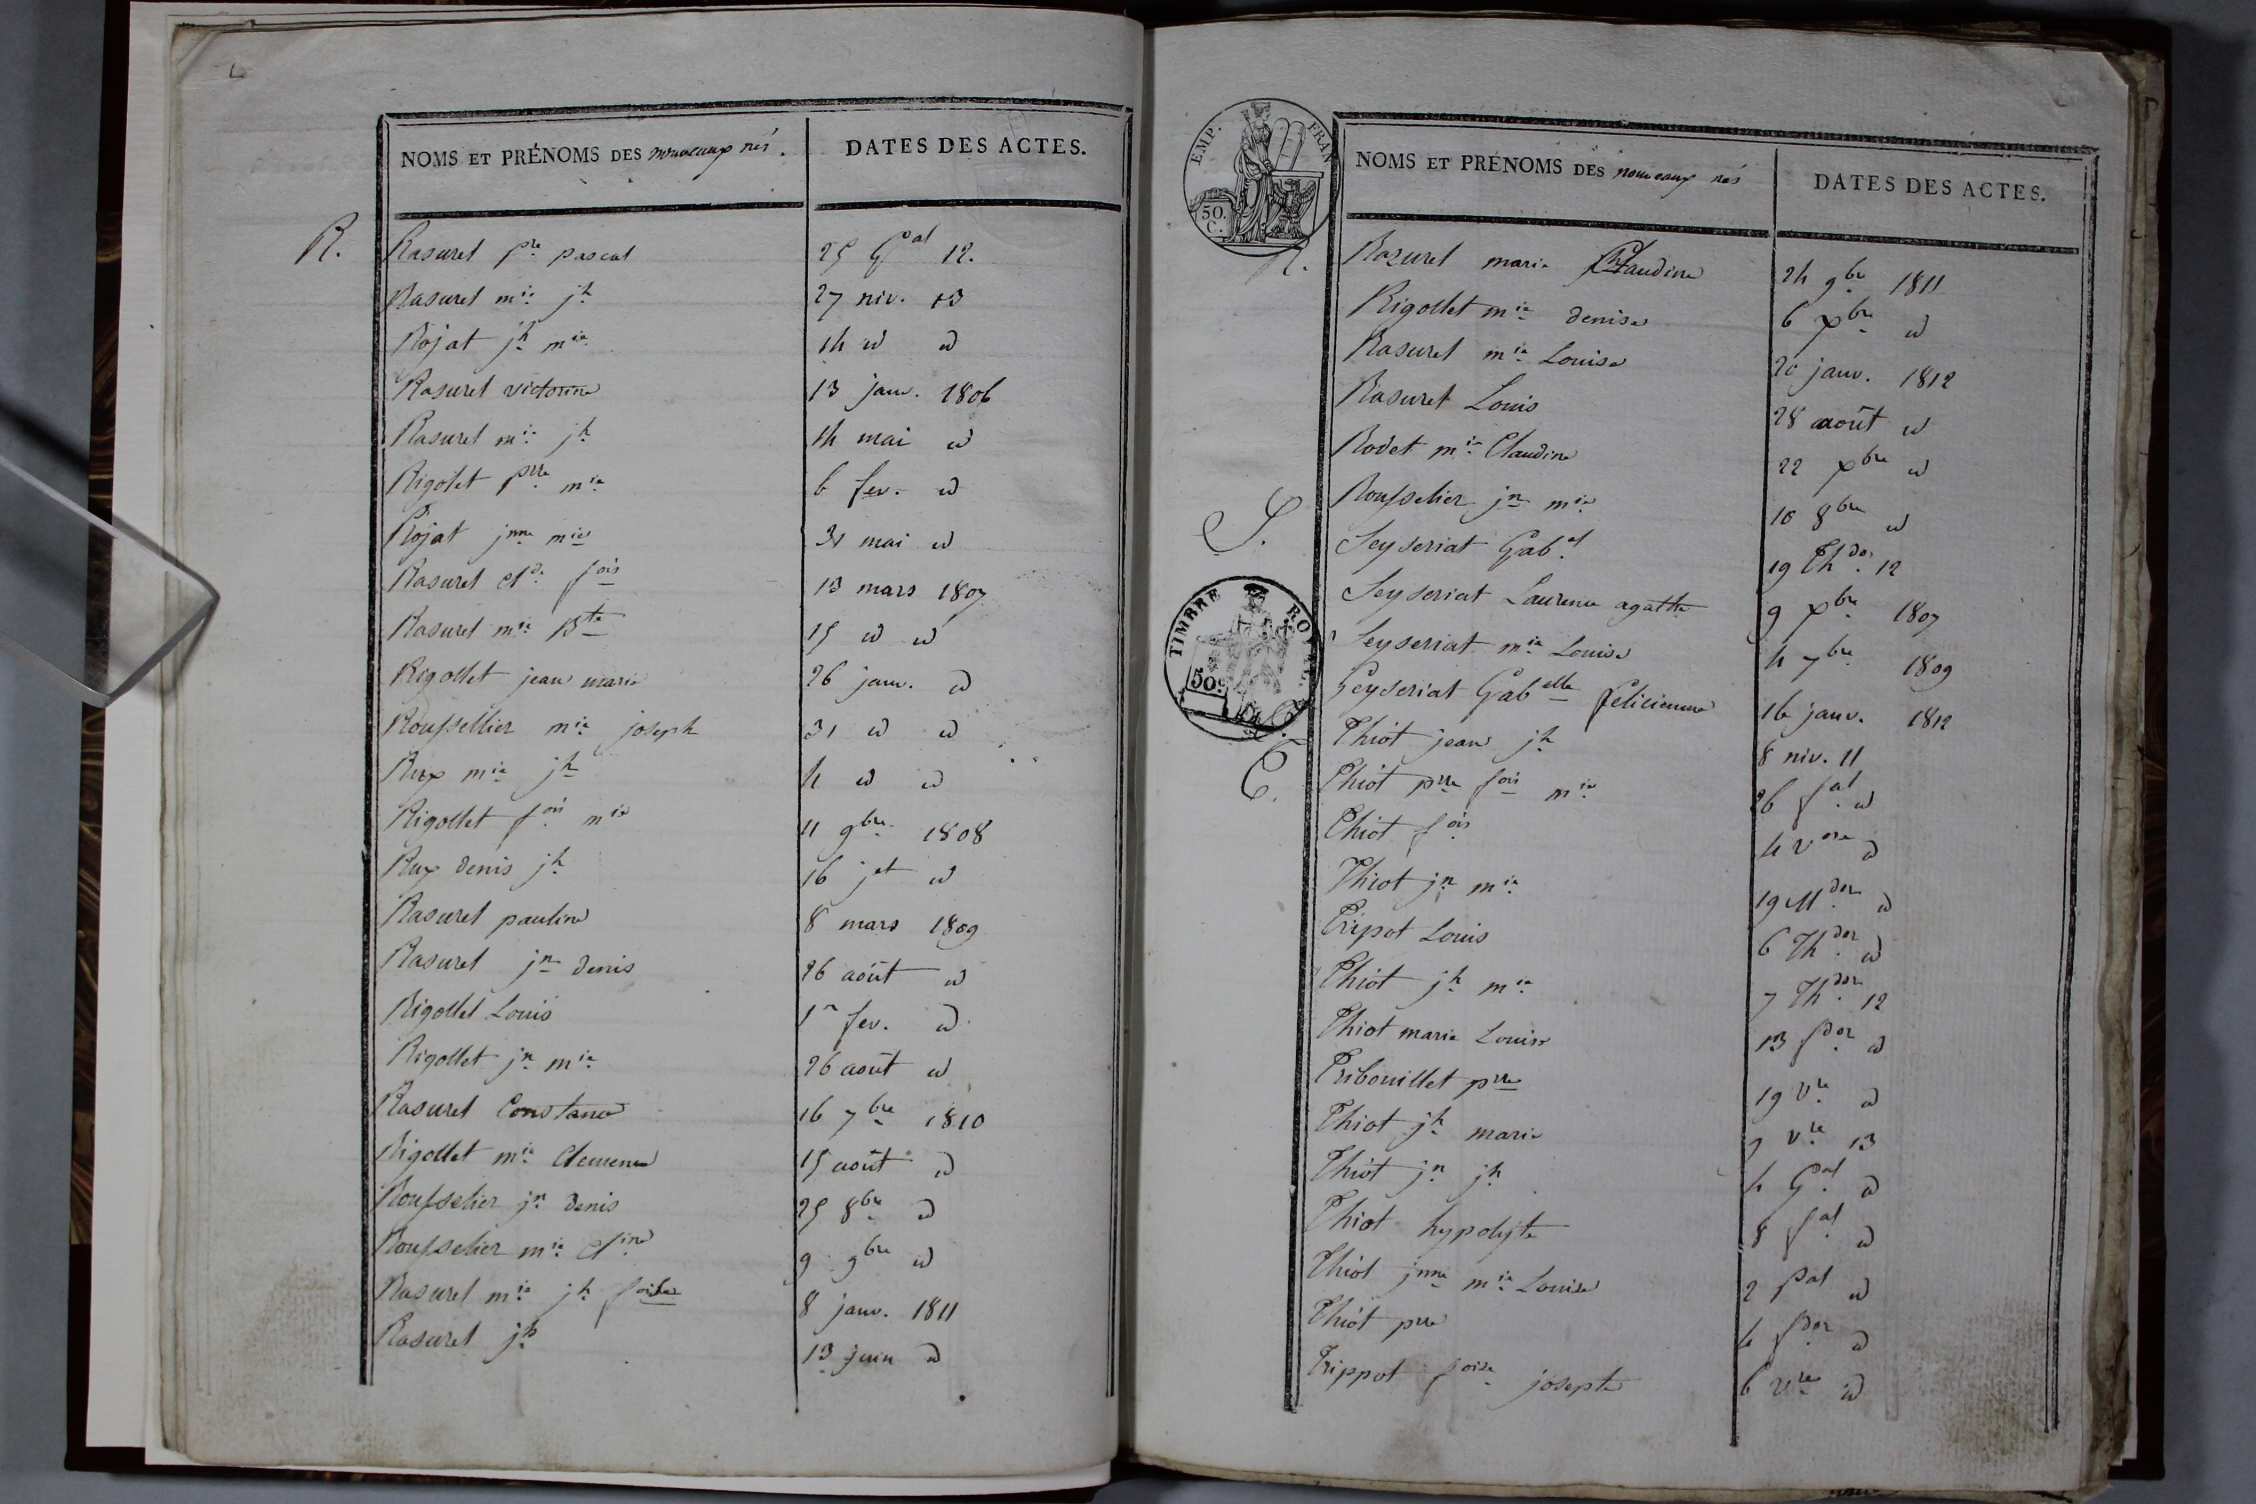 NOMS ET PRÉNOMS DES nouveaux nés. DATES DES ACTES.
R. Rasurel p.re pascal 25 G.al 12.
Rasurel m.ie j.h 27 niv. 13
Rojat j.h m.ie 14 id id
Rasurel victorine 13 janv. 1806
Rasurel m.ie j.h 14 mai id
Rigolet p.rre m.ie 6 fev. id
Rojat j.nne m.ie 31 mai id
Rasurel cl.de f.ois 13 mars 1807
Rasurel m.ie B.te 15 id id
Rigollet jean marie 26 janv. id
Rousselier m.ie joseph 31 id id
Rux m.ie j.h 4 id id
Rigollet f.ois m.ie 11 9.bre 1808
Rux denis j.h 16 j.et id
Rasurel pauline 8 mars 1809
Rasurel j.n denis 26 août id
Rigollet Louis 1.r fev. id
Rigollet j.n m.ie 26 août id
Rasurel Constance 16 7.bre 1810
Rigollet m.ie Clemence 15 août id
Rousselier j.n denis 25 8.bre id
Rousselier m.ie cl.ine 9 9.bre id
Rasurel m.ie j.h 8 janv. 1811
Rasurel j.h 13 juin id
EMP. FRAN
50. C.
NOMS ET PRÉNOMS DES nouveaux nés DATES DES ACTES.
R. Rasurel marie Claudine 24 9.bre 1811
Rigollet m.ie denise 6 x.bre id
Rasurel m.ie Louise 20 janv. 1812
Rasurel Louis 28 août id
Rodet m.ie Claudine 22 x.bre id
Rousselier j.n m.ie 10 8.bre id
S. Seyseriat Gab.el 19 Th.dor 12
Seyseriat Laurence agathe 9 x.bre 1807
Seyseriat m.ie Louise 4 7.bre 1809
Seyseriat Gab.elle felicienne 16 janv. 1812
TIMBRE ROYAL
50c
T. Thiot jean j.h 8 niv. 11
Thiot p.rre f.ois m.ie 26 f.al id
Thiot f.ois 4 v.ose id
Thiot j.n m.ie 19 M.dor id
Tripot Louis 6 Th.dor id
Thiot j.h m.ie 7 Th.dor 12
Thiot marie Louise 13 f.dor id
Tribouillet p.rre 19 V.re id
Thiot j.h marie 9 V.re 13
Thiot j.n j.h 4 G.al id
Thiot hypolyte 8 f.al id
Thiot j.nne m.ie Louise 2 p.al id
Thiot p.rre 4 f.dor id
Trippot f.oise josephe 6 V.re id